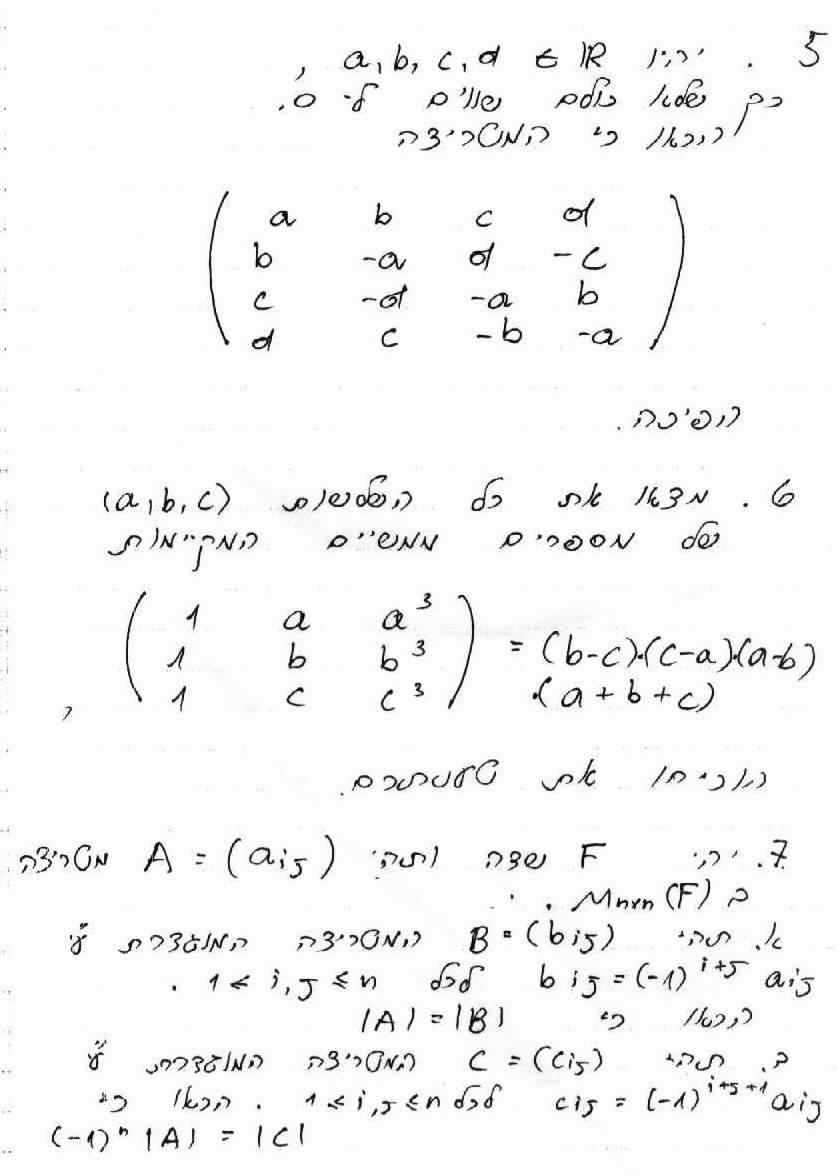 5. יהיו a, b, c, d ∈ ℝ ,
כך שלא כולם שווים ל-0.
הראו כי המטריצה
a b c d
b -a d -c
c -d -a b
d c -b -a
הפיכה.
6. מצאו את כל השלשות (a,b,c)
של מספרים ממשיים המקיימות
1 a a³
1 b b³ = (b-c)·(c-a)·(a-b)
1 c c³ ·(a+b+c) ,
הוכיחו את טענתכם.
7. יהי F שדה ותהי A = (aij) מטריצה
ב Mnxn(F) .
א. תהי B = (bij) המטריצה המוגדרת ע"י
bij = (-1)^i+j aij לכל 1 ≤ i,j ≤ n .
הראו כי |A| = |B|
ב. תהי C = (cij) המטריצה המוגדרת ע"י
cij = (-1)^i+j+1 aij לכל 1 ≤ i,j ≤ n . הראו כי
(-1)^n |A| = |C|